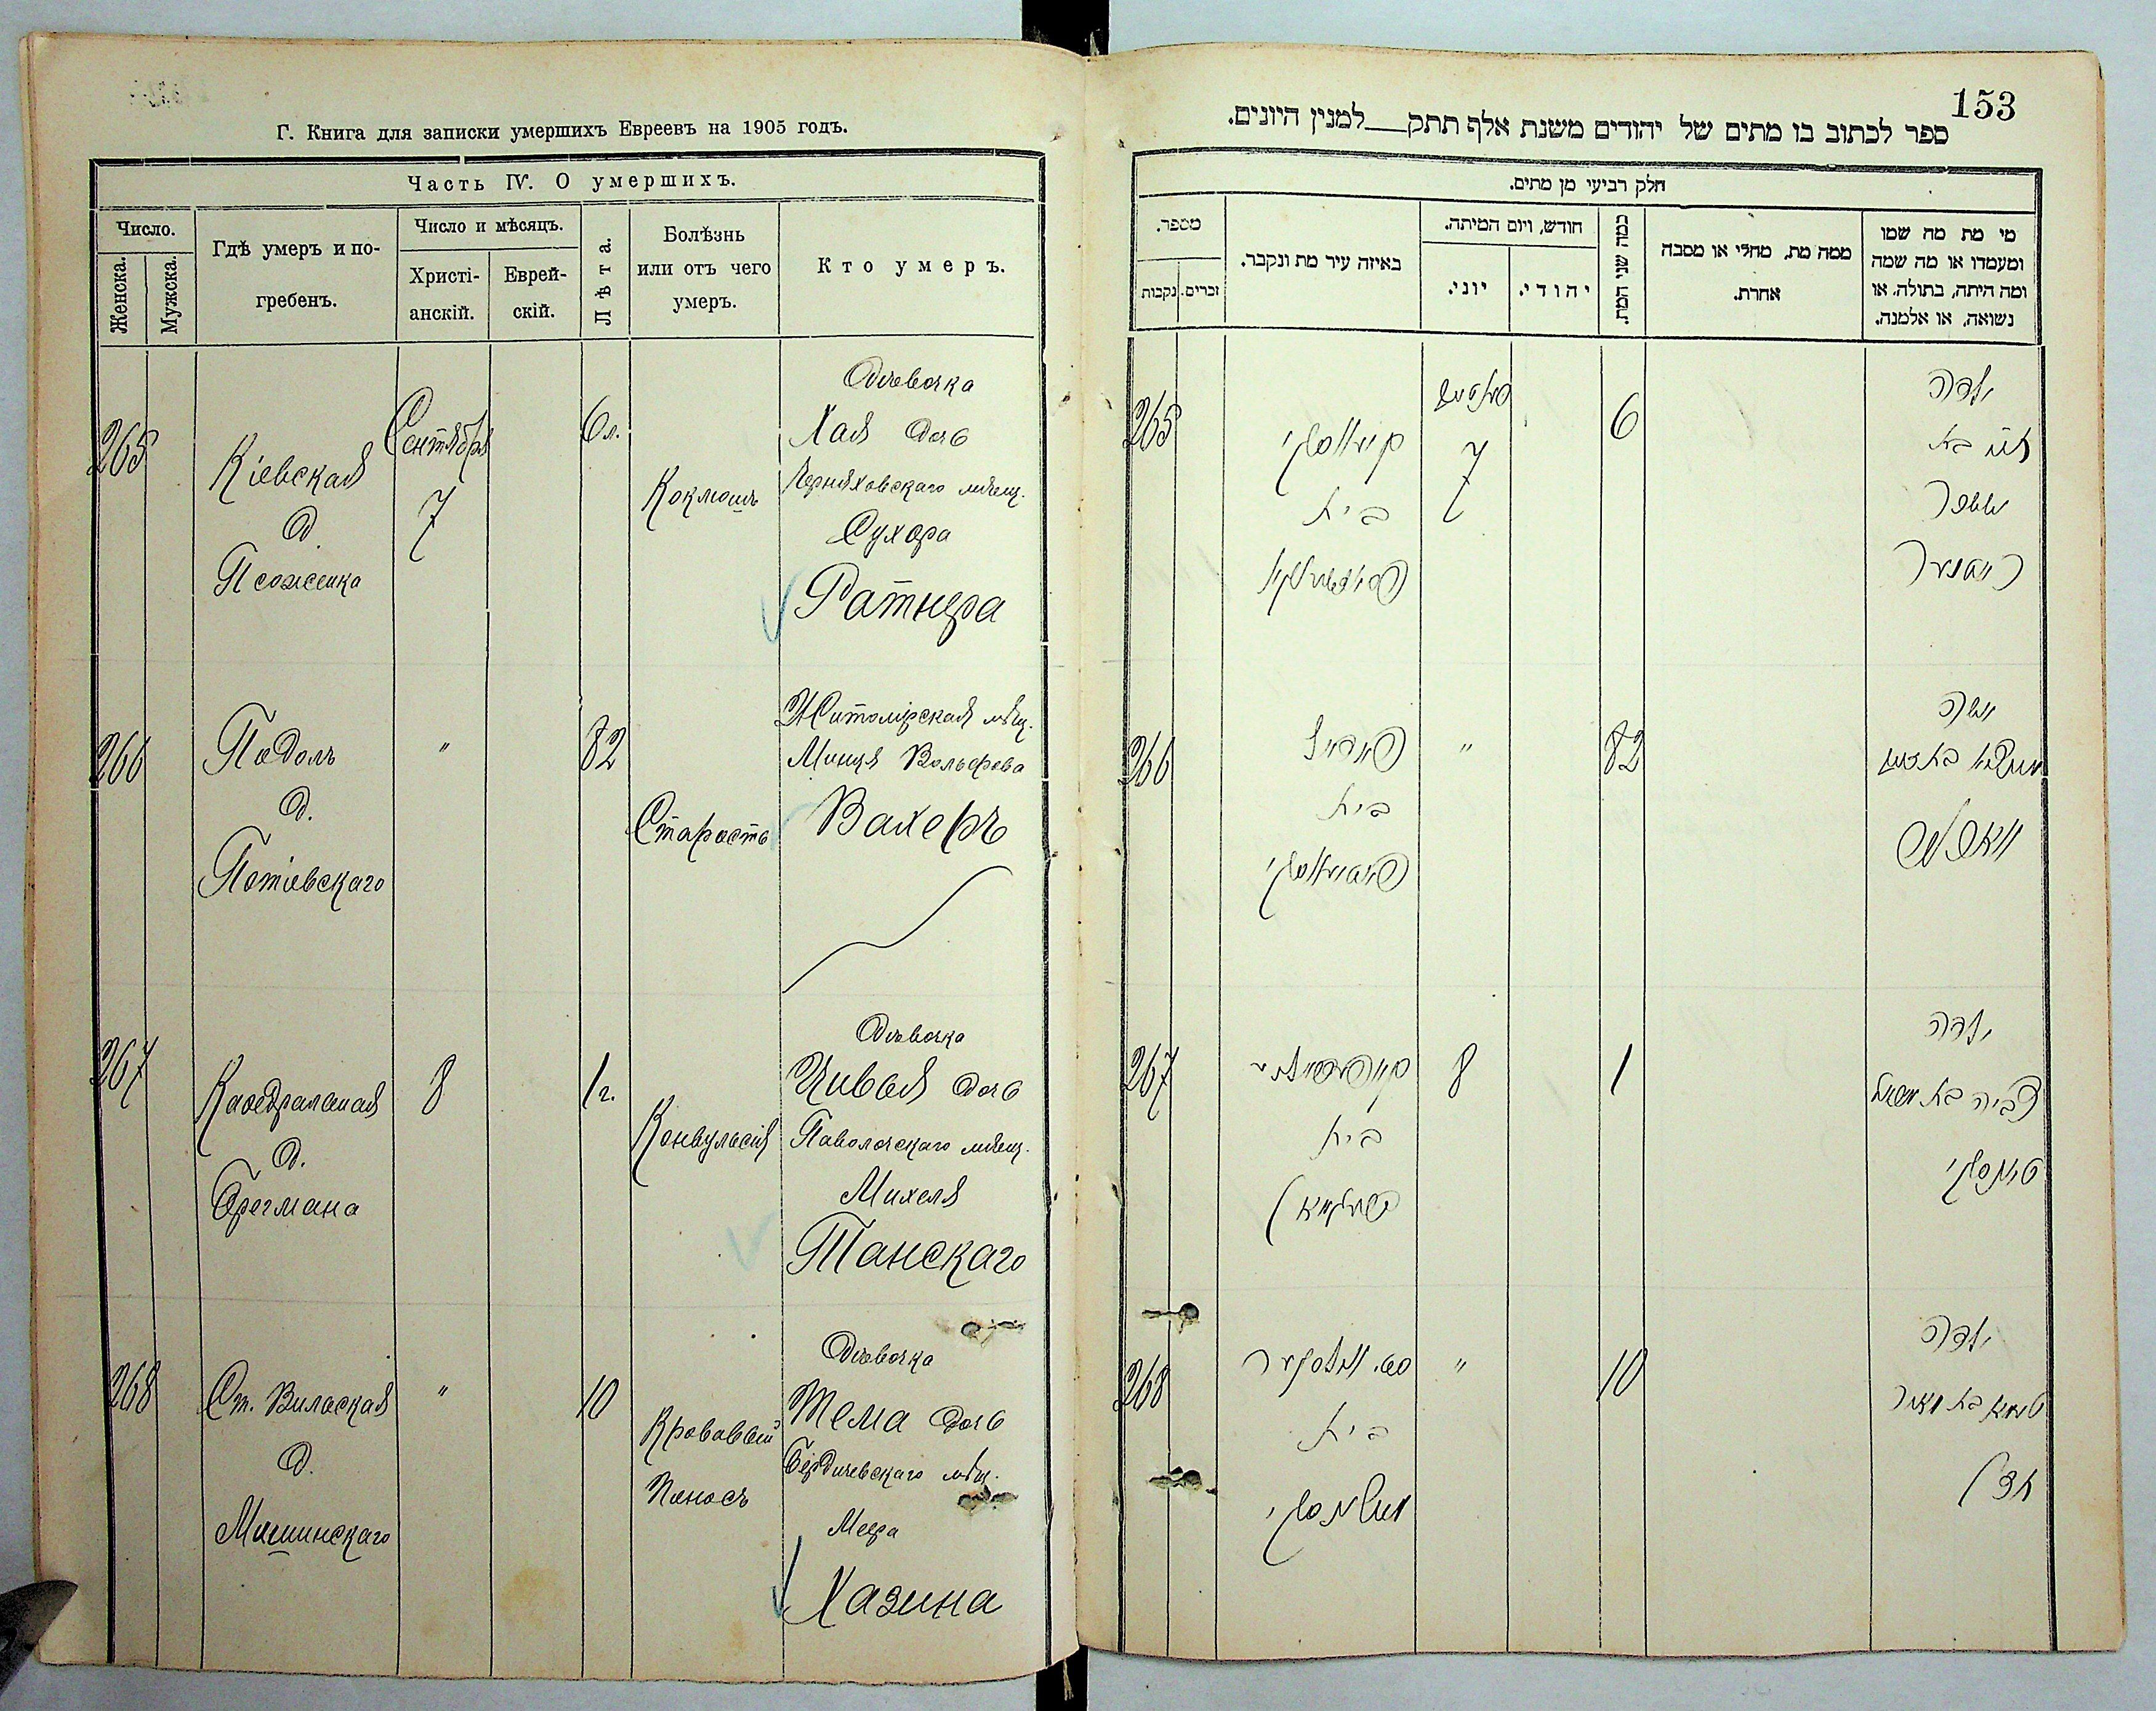 Г. Книга для записки умершихъ Евреевъ на 1905 годъ.
Часть IV. О умершихъ.
Число.
Женска.
Мужска.
Гдѣ умеръ и по-
гребенъ.
Число и мѣсяцъ.
Христі-
анскій.
Еврей-
скій.
Лѣта.
Болѣзнь
или отъ чего
умеръ.
Кто умеръ.
265
Кіевская
д.
Сентября
7
6 л.
Коклюшъ
Дѣвочка
Хая дочь
Черняховскаго мѣщ.
Сухера
Ратнера
266
Подолъ
д.
Потіевскаго
"
82
Старость
Житомірская мѣщ.
Минця Вольфова
Вахеръ
267
Каѳедральная
д.
Брегмана
8
1 г.
Конвульсія
Дѣвочка
Цивья дочь
Паволочскаго мѣщ.
Михеля
Танскаго
268
Ст. Вильская
д.
Мишинскаго
"
10
Кровавый
Поносъ
Дѣвочка
Тема дочь
Бердичевскаго мѣщ.
Меера
Хазина
153
ספר לכתוב בו מתים של יהודים משנת אלף תתק__למנין היונים.
חלק רביעי מן מתים.
מספר.
זכרים.
נקבות
באיזה עיר מת ונקבר.
חודש, ויום המיתה.
יוני.
יהודי.
כמה שני המת.
ממה מת, מחלי או מסבה
אחרת.
מי מת מה שמו
ומעמדו או מה שמה
ומה היתה, בתולה, או
נשואה, או אלמנה.
265
קיעווסקי
בית
7
6
ילדה
266
פאדאל
בית
"
82
267
בית
8
1
ילדה
צביה בת מיכאל
טאנסקי
268
בית
"
10
ילדה
טעמא בת מאיר
חזן